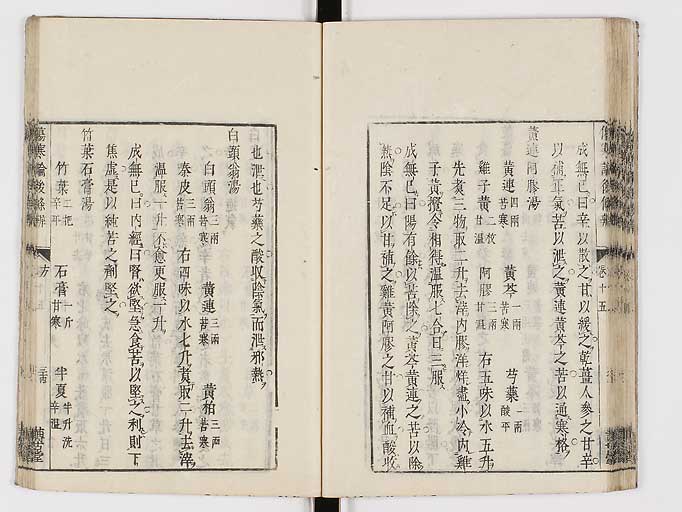 成無已曰辛以散之甘以緩之乾薑人參之甘辛
以補正氣苦以泄之黃連黃芩之苦以通寒格
黃連阿膠湯
黃連 四兩 苦寒 黃芩 一兩 苦寒 芍藥 二兩 酸平
雞子黃 二枚 甘溫 阿膠 三兩 甘溫 右五味以水五升
先煑三物取二升去滓內膠烊盡小冷內雞
子黃攪令相得溫服七合日三服
成無已曰陽有餘以苦除之黃芩黃連之苦以除
熱陰不足以甘補之雞黃阿膠之甘以補血酸收
卷十五
也泄也芍藥之酸收陰氣而泄邪熱
白頭翁湯
白頭翁 三兩 苦寒 黃連 三兩 苦寒 黃栢 三兩 苦寒
秦皮 三兩 苦寒 右四味以水七升煑取二升去滓
溫服一升不愈更服一升
成無已曰內經曰腎欲堅急食苦以堅之利則下
焦虛是以純苦之劑堅之
竹葉石膏湯
竹葉 二把 辛平 石膏 一斤 甘寒 半夏 半升洗 辛溫
傷寒論後條辨 方